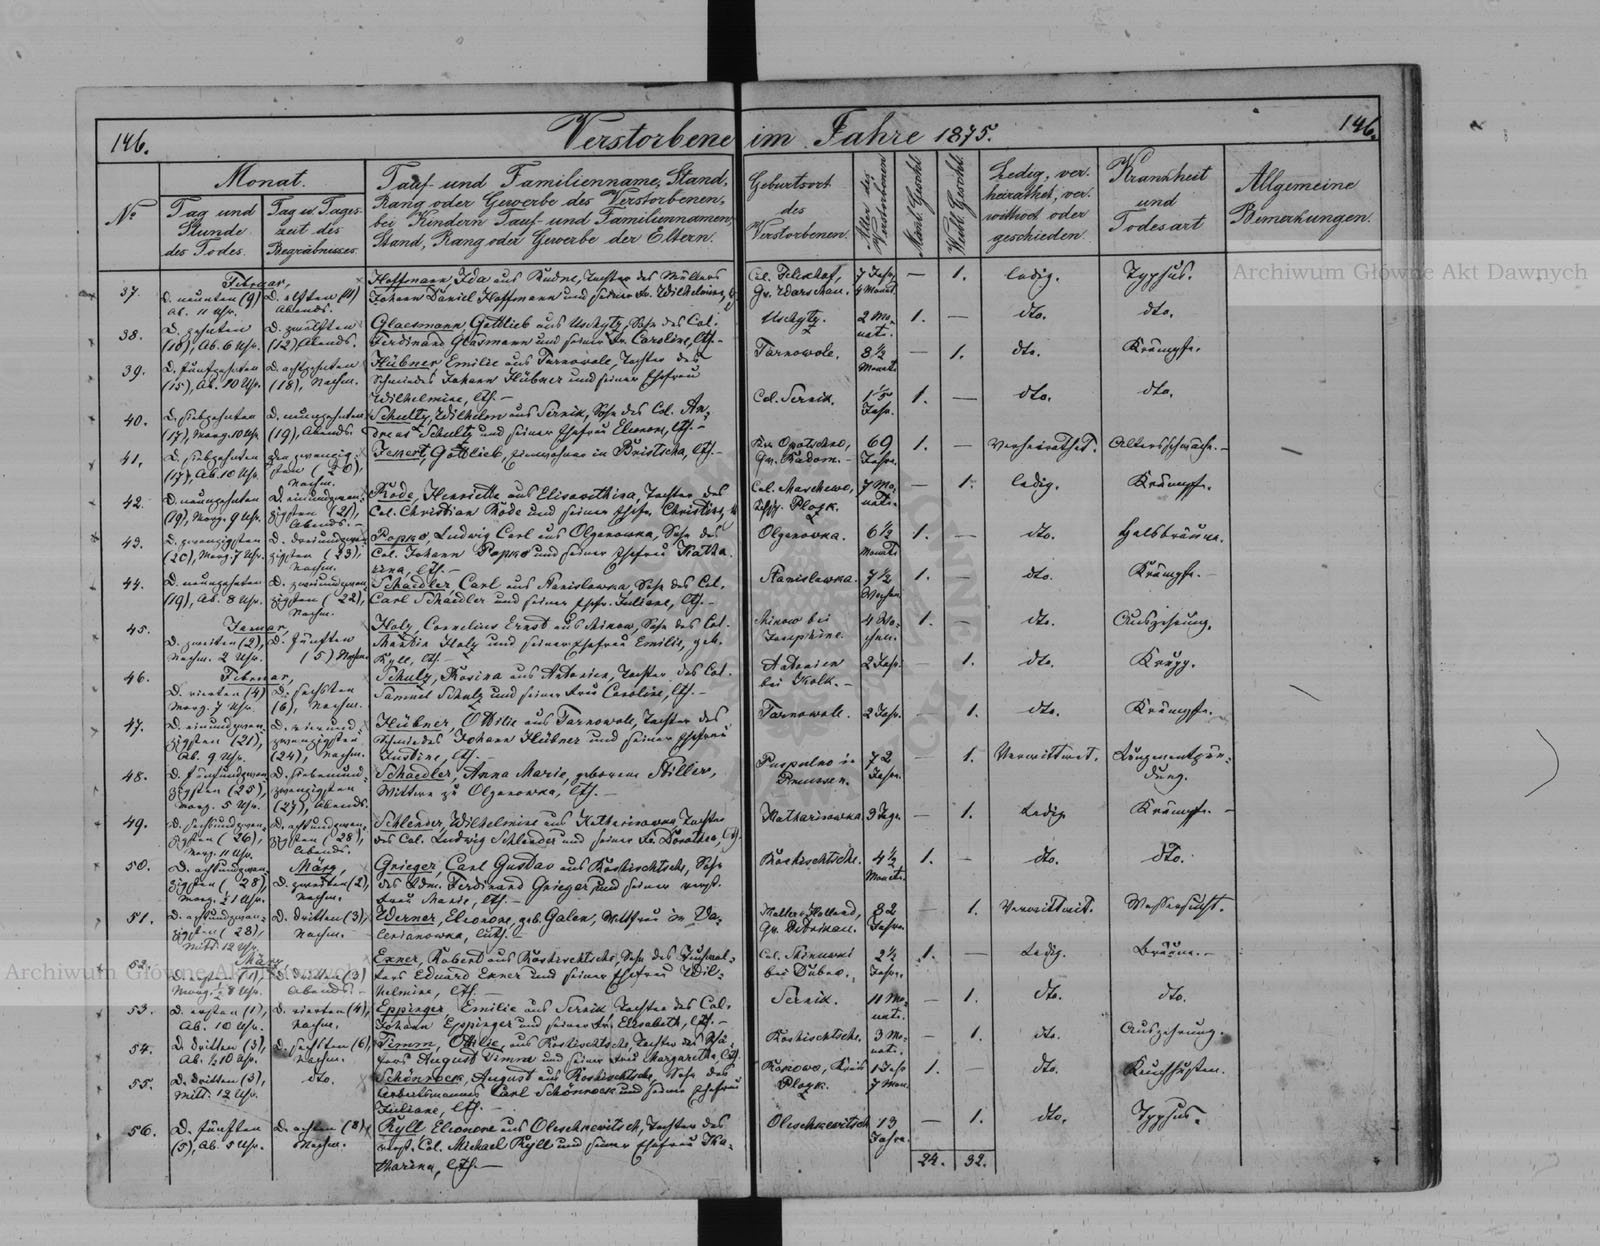 146.
Verstorbene im Jahre 1875.
146.
Nº
Monat.
Tag und
Stunde
des Todes.
Tag u. Tages-
zeit des
Begräbnisses.
Tauf- und Familienname, Stand,
Rang oder Gewerbe des Verstorbenen,
bei Kindern Tauf- und Familiennamen,
Stand, Rang oder Gewerbe der Eltern.
Geburtsort
des
Verstorbenen.
Alter des
Verstorbenen
Männl. Geschl.
Weibl. Geschl.
Ledig, ver-
heirathet, ver-
wittwet oder
geschieden
Krankheit
und
Todesart
Allgemeine
Bemerkungen.
37.
Februar,
D. neunten (9)
Ab. 11 Uhr.
D. elften (11)
Abends.
Hoffmann, Ida aus Rudne, Tochter des Müllers
Johann Daniel Hoffmann und seiner Fr. Wilhelmine,
Col. Felixhof,
Gv. Warschau.
7 Jahr,
4 Monat.
— 1. ledig. Typhus.
38.
D. zehnten
(10), Ab. 6 Uhr.
D. zwölften
(12) Abends.
Glaesmann, Gottlieb aus Uschytz, Sohn des Col.
Ferdinand Glasmann und seiner Fr. Caroline, lth. —
Uschytz.
2 Mo-
nate.
1. — dto. dto.
39.
D. fünfzehnten
(15), Ab. 10 Uhr.
D. achtzehnten
(18), Nachm.
Hübner, Emilie aus Tarnowole, Tochter des
Schmiedes Johann Hübner und seiner Ehefrau
Wilhelmine, lth. —
Tarnowole.
8½
Monate
— 1. dto. Krämpfe.
40.
D. siebzehnten
(17), Morg. 10 Uhr
D. neunzehnten
(19), Abends.
Schultz, Wilhelm aus Sernik, Sohn des Col. An-
dreas Schultz und seiner Ehefrau Eleonore, lth. —
Col. Sernik.
Jahr.
1. — dto. dto.
41.
D. siebzehnten
(17), Ab. 10 Uhr.
den zwanzig-
sten (20),
Nachm.
Gottlieb, Einwohner in Bristscha, lth. —
Kr. Opotschno,
Gv. Radom. —
69
Jahre.
1. — Verheirathet. Altersschwäche. —
42.
D. neunzehnten
(19), Morg. 9 Uhr.
D. einundzwan-
zigsten (21),
Abends. —
Rode, Henriette aus Elisawethina, Tochter des
Col. Christian Rode und seiner Ehefr. Christine,
Col. Maschewo,
Plozk.
7 Mo-
nate.
— 1. ledig. Krämpfe.
43.
D. zwanzigsten
(20), Morg. 7 Uhr.
D. dreiundzwan-
zigsten (23),
Nachm.
Popko, Ludwig Carl aus Olganowka, Sohn des
Col. Johann Popko und seiner Ehefrau Katha-
rina, lth. —
Olganowka.
6½
Monate
1. — dto. Halsbräune.
44.
D. neunzehnten
(19), Ab. 8 Uhr.
D. zweiundzwan-
zigsten (22),
Nachm.
Schaedler, Carl aus Stanislawka, Sohn des Col.
Carl Schaedler und seiner Ehefr. Juliane, lth. —
Stanislawka.
7½
Wochen
1. — dto. Krämpfe. —
45.
Januar,
D. zweiten (2),
Nachm. 2 Uhr.
D. fünften
(5) Nachm.
Holz, Cornelius Ernst aus Minow, Sohn des Col.
Martin Holz und seiner Ehefrau Emilie, geb.
Kyll, lth. —
Minow bei
Josephine.
4 Wo-
chen.
1. — dto. Auszehrung.
46.
Februar,
D. vierten (4)
Morg. 7 Uhr.
D. sechsten
(6), Nachm.
Schulz, Rosina aus Antonien, Tochter des Col.
Samuel Schulz und seiner Frau Caroline, lth. —
Antonien
bei Kolk. —
2 Jahr.
— 1. dto. Krupp.
47.
D. einundzwan-
zigsten (21),
Ab. 9 Uhr.
D. vierund-
zwanzigsten
(24), Nachm.
Hübner, Ottilie aus Tarnowole, Tochter des
Schmiedes Johann Hübner und seiner Ehefrau
Justine, lth. —
Tarnowole.
2 Jahr.
— 1. dto. Krämpfe.
48.
D. fünfundzwan-
zigsten (25),
Morg. 5 Uhr.
D. siebenund-
zwanzigsten
(27), Abends.
Schaedler, Anna Marie, geborene Stiller,
Wittwe zu Olganowka, lth. —
Preussen.
72
Jahre.
— 1. Verwittwet. Lungenentzün-
dung.
49.
D. sechsundzwan-
zigsten (26),
Morg. 11 Uhr.
D. achtundzwan-
zigsten (28),
Abends.
Schlender, Wilhelmine aus Katharinowka, Tochter
des Col. Ludwig Schlender und seiner Fr. Dorothea,
Katharinowka
3 Tage.
— 1. Ledig. Krämpfe. —
50.
D. achtundzwan-
zigsten (28),
Morg. 1 Uhr.
März,
D. zweiten (2),
Nachm.
Grieger, Carl Gustav aus Roskischtsche, Sohn
des Ferdinand Grieger und seiner
Frau Marie, lth. —
Roskischtsche.
4½
Monate.
1. — dto. dto.
51.
D. achtundzwan-
zigsten (28),
Mitt. 12 Uhr.
D. dritten (3),
Nachm. —
Werner, Eleonore, geb. Galen, Wittfrau in Va-
lerianowka, luth. —
Holland,
Gv. Petrikau.
82
Jahre.
— 1. Verwittwet. Wassersucht.
52.
März,
D. ersten (1),
Morg. ½ 8 Uhr.
D. dritten (3)
Abends. —
Exner, Robert aus Roskischtsche, Sohn des
Eduard Exner und seiner Ehefrau Wil-
helmine, lth. —
Col.
bei Dubno.
2½
Jahre.
1. — Ledig. Bräune. —
53.
D. ersten (1),
Ab. 10 Uhr.
D. vierten (4),
Nachm.
Eppinger, Emilie aus Sernik, Tochter des Col.
Johann Eppinger und seiner Fr. Elisabeth, lth. —
Sernik.
11 Mo-
nate.
— 1. dto. dto.
54.
D. dritten (3),
Ab. ½10 Uhr.
D. sechsten (6)
Nachm.
Timm, Ottilie, aus Roskischtsche, Tochter des
August Timm und seiner Frau Margarethe, lth.
Roskischtsche.
3 Mo-
nate.
— 1. dto. Auszehrung.
55.
D. dritten (3),
Mitt. 12 Uhr.
dto.
Schönrock, August aus Roskischtsche, Sohn des
Arbeitsmannes Carl Schönrock und seiner Ehefrau
Juliane, lth. —
Kreis
Plozk.
1 Jahr
7 Mon.
1. — dto. Keuchhusten.
56.
D. fünften
(5), Ab. 5 Uhr.
D. achten (8),
Nachm.
Kyll, Eleonore aus Oleschkewitsch, Tochter des
verst. Col. Michael Kyll und seiner Ehefrau Ka-
tharina, lth. —
Oleschkewitsch
13
Jahre.
— 1. dto. Typhus.
24. 32.
Archiwum Główne Akt Dawnych
Archiwum Główne Akt Dawnych